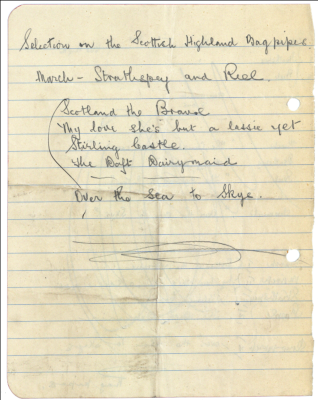 Selection on the Scottish Highland Bagpipes.
March - Strathspey and Reel.
Scotland the Brave
My love she's but a lassie yet
Stirling Castle.
The Daft Dairymaid
Over the Sea to Skye.